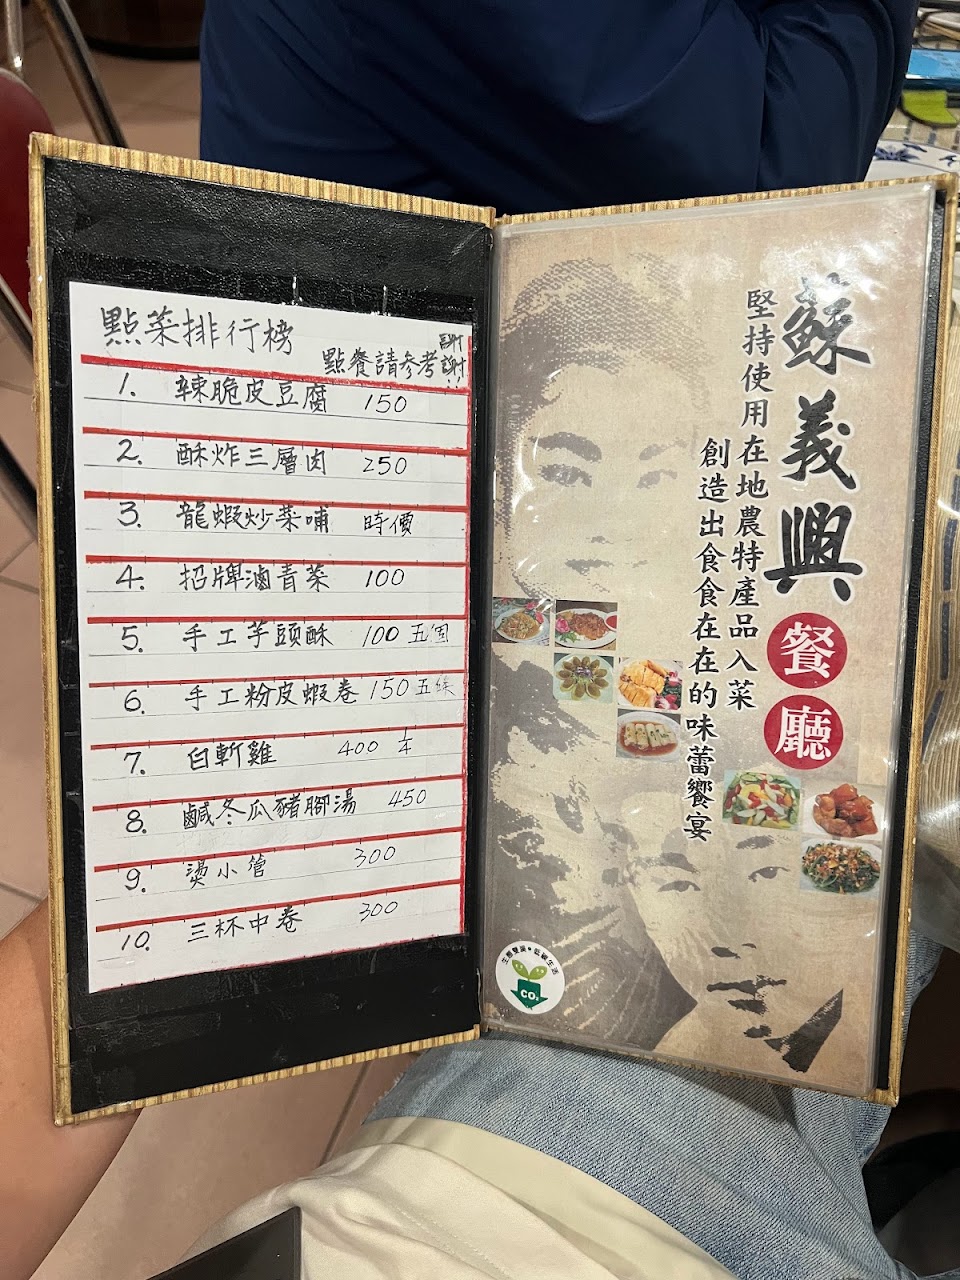 點菜排行榜
點餐請參考 謝謝!!
1. 辣脆皮豆腐 150
2. 酥炸三層肉 250
3. 龍蝦炒菜哺 時價
4. 招牌滷青菜 100
5. 手工芋頭酥 100 五個
6. 手工粉皮蝦卷 150 五條
7. 白斬雞 400 1/4
8. 鹹冬瓜豬腳湯 450
9. 燙小管 300
10. 三杯中卷 300
蘇義興
餐廳
堅持使用在地農特產品入菜
創造出食食在在的味蕾饗宴
CO₂